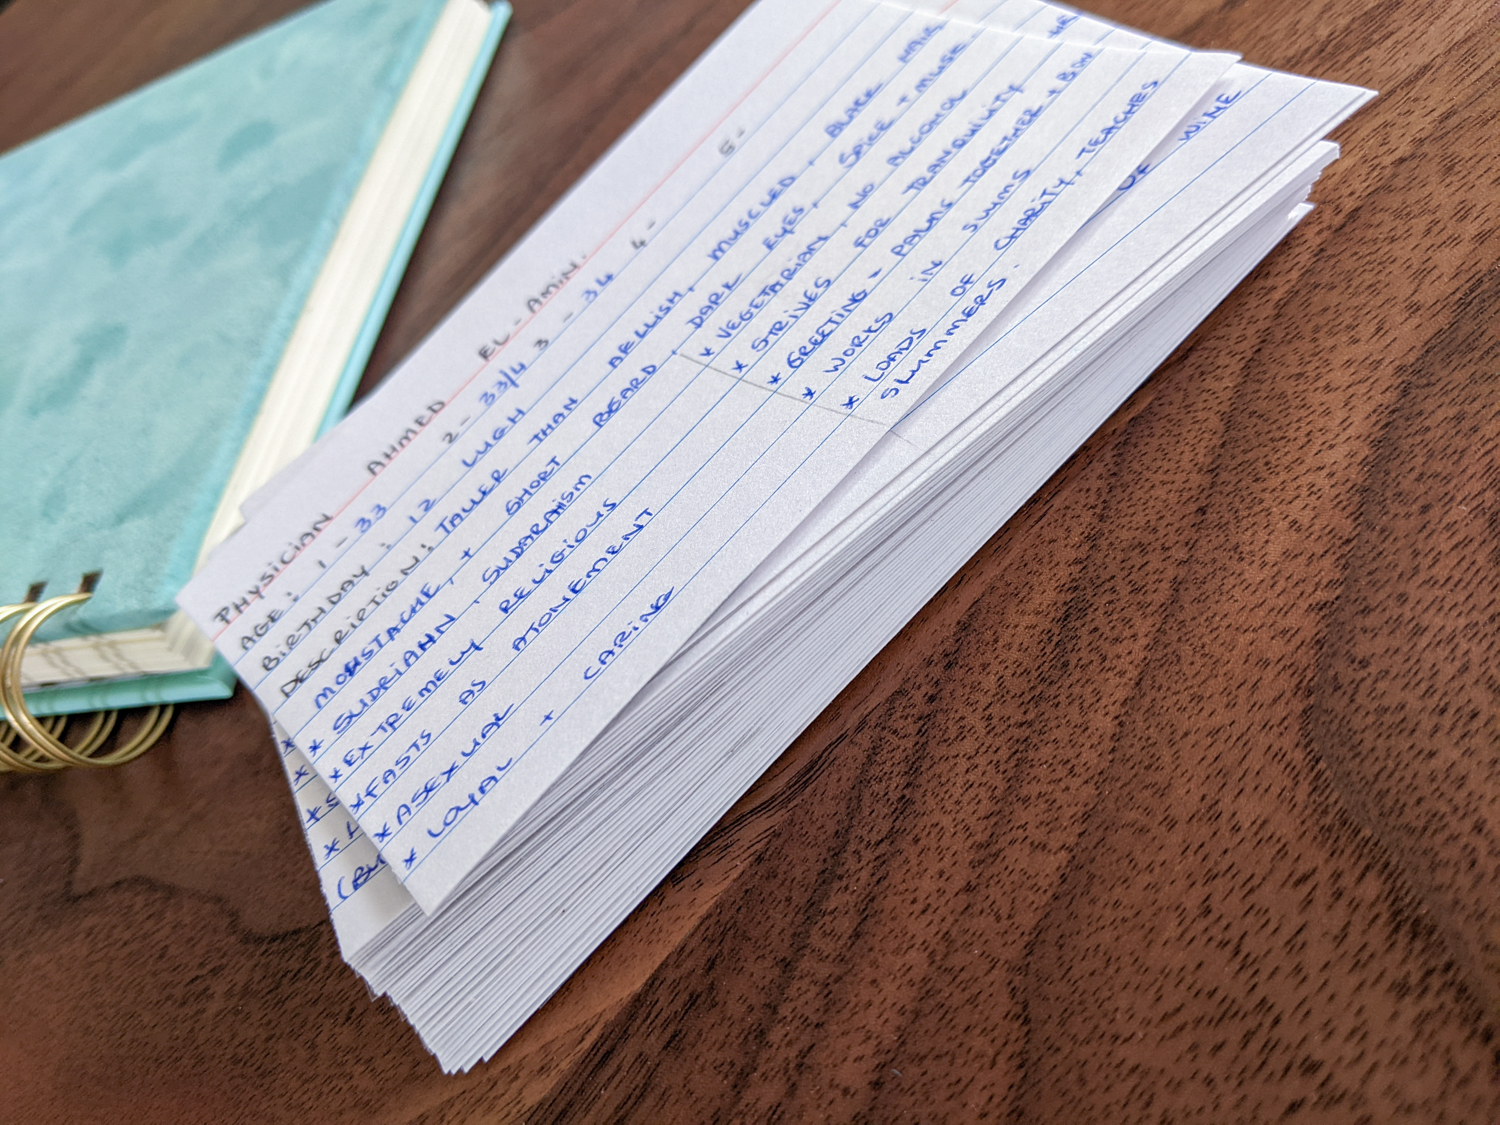 PHYSICIAN AHMED EL-AMIN.
AGE: 1 - 33 2 - 33/4 3 - 34 4 - 5 -
BIRTHDAY: 12 LUGH
DESCRIPTION: TALLER THAN AELLISH, MUSCLED, BLACK HAIR
MOUSTACHE, + SHORT BEARD, DARK EYES, SPICE + MUSK.
* SUDRIAHN, SUDARAHISM
* EXTREMELY RELIGIOUS
* FASTS AS ATONEMENT
* ASEXUAL
* LOYAL + CARING
* VEGETARIAN, NO ALCOHOL
* STRIVES FOR TRANQUILITY
* GREETING - PALMS TOGETHER + BOW
* WORKS IN SLUMS
* LOADS OF CHARITY, TEACHES
SLUMMERS.
OF WINE